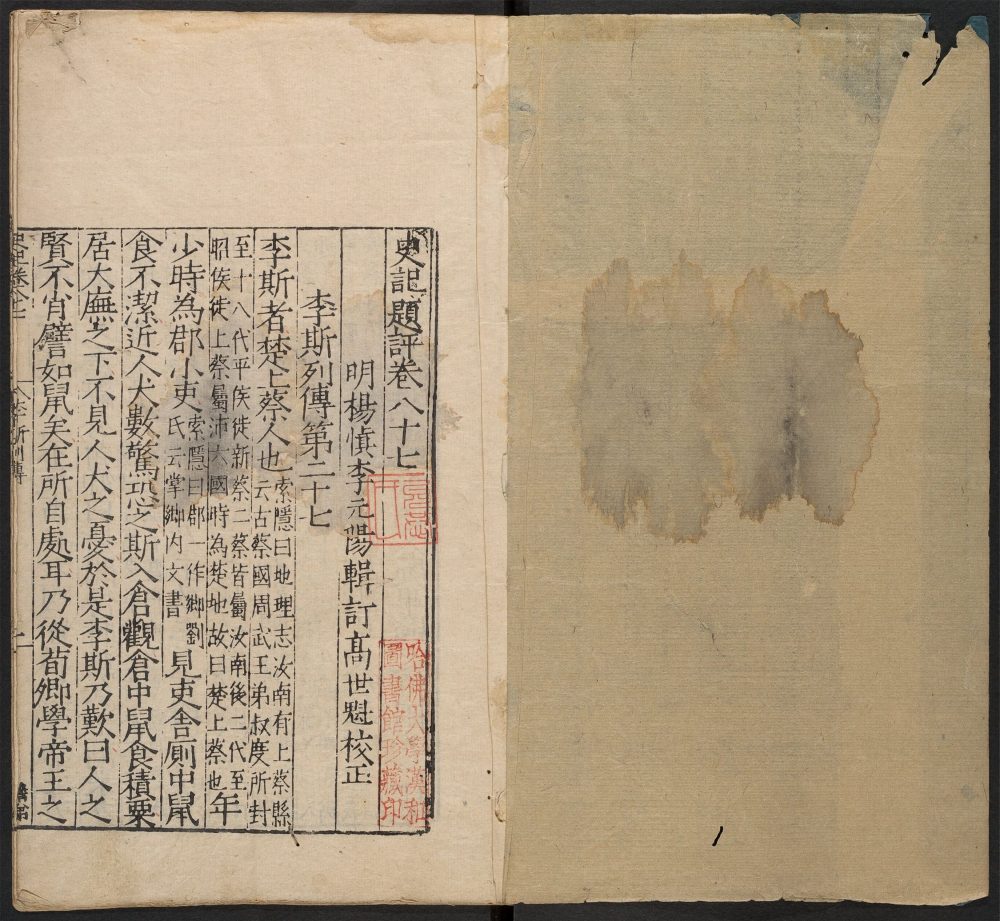 史記題評卷八十七
明楊慎李元陽輯訂高世魁校正
李斯列傳第二十七
李斯者楚上蔡人也索隱曰地理志汝南有上蔡縣云古蔡國周武王弟叔度所封
至十八代平侯徙新蔡二蔡皆屬汝南後二代至昭侯徙上蔡屬沛六國時為楚地故曰楚上蔡也年
少時為郡小吏索隱曰郡一作鄉劉氏云掌鄉內文書見吏舍廁中鼠
食不潔近人犬數驚恐之斯入倉觀倉中鼠食積粟
居大廡之下不見人犬之憂於是李斯乃歎曰人之
賢不肖譬如鼠矣在所自處耳乃從荀卿學帝王之
史記卷八十七
李斯列傳
一
哈佛大學漢和
圖書館珍藏印